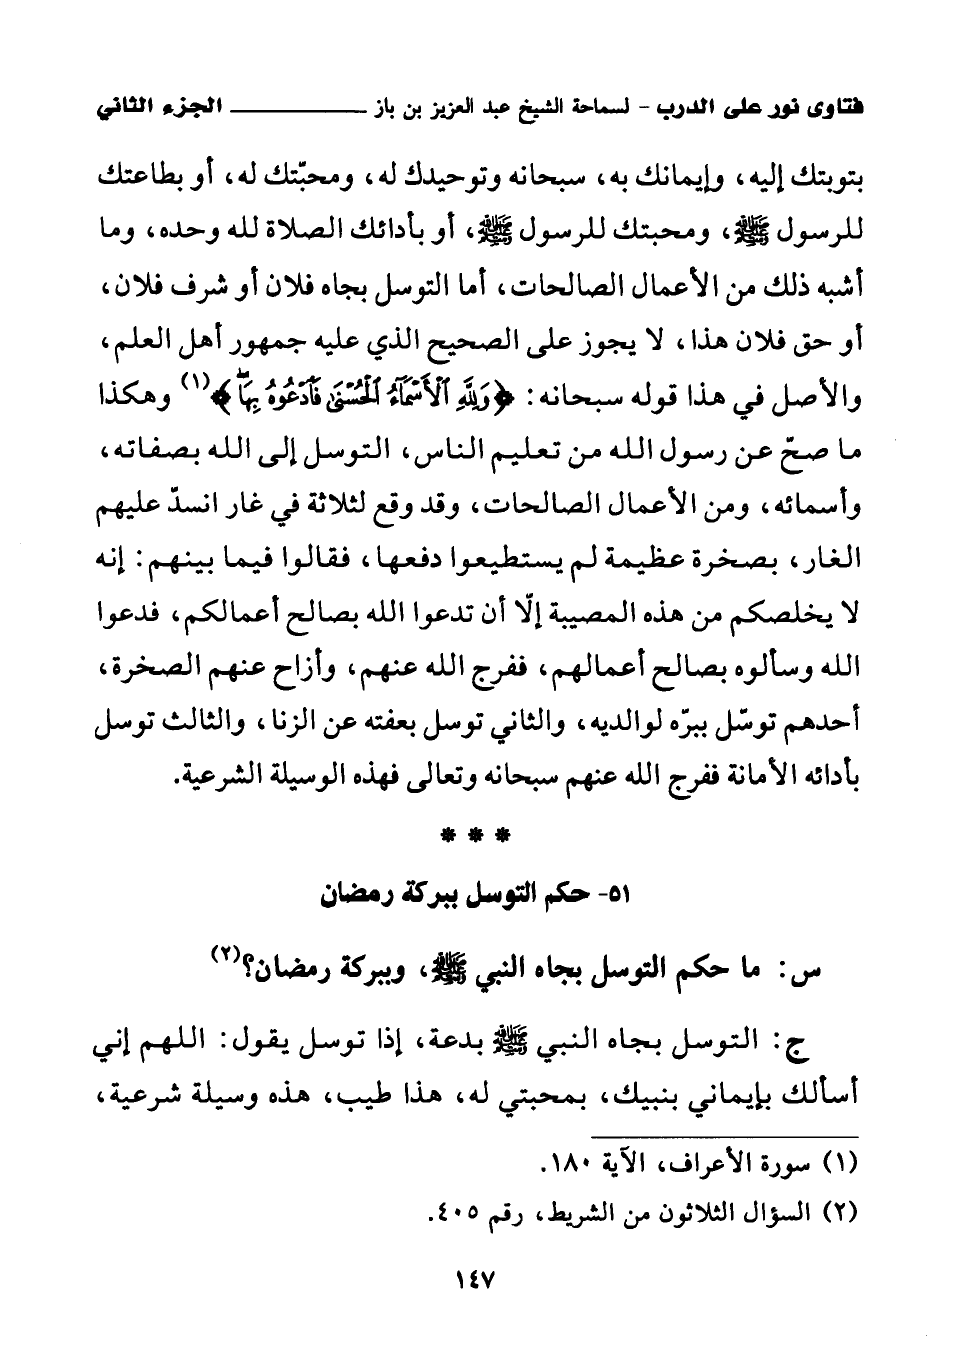 فتاوى نور على الدرب - لسماحة الشيخ عبد العزيز بن باز ـــــــــــــ الجزء الثاني
بتوبتك إليه، وإيمانك به، سبحانه وتوحيدك له، ومحبّتك له، أو بطاعتك
للرسول ﷺ، ومحبتك للرسول ﷺ، أو بأدائك الصلاة لله وحده، وما
أشبه ذلك من الأعمال الصالحات، أما التوسل بجاه فلان أو شرف فلان،
أو حق فلان هذا، لا يجوز على الصحيح الذي عليه جمهور أهل العلم،
والأصل في هذا قوله سبحانه: ﴿وَلِلَّهِ الْأَسْمَاءُ الْحُسْنَىٰ فَادْعُوهُ بِهَا﴾(١) وهكذا
ما صحّ عن رسول الله من تعليم الناس، التوسل إلى الله بصفاته،
وأسمائه، ومن الأعمال الصالحات، وقد وقع لثلاثة في غار انسدّ عليهم
الغار، بصخرة عظيمة لم يستطيعوا دفعها، فقالوا فيما بينهم: إنه
لا يخلصكم من هذه المصيبة إلّا أن تدعوا الله بصالح أعمالكم، فدعوا
الله وسألوه بصالح أعمالهم، ففرج الله عنهم، وأزاح عنهم الصخرة،
أحدهم توسّل ببرّه لوالديه، والثاني توسل بعفته عن الزنا، والثالث توسل
بأدائه الأمانة ففرج الله عنهم سبحانه وتعالى فهذه الوسيلة الشرعية.
* * *
٥١- حكم التوسل ببركة رمضان
س: ما حكم التوسل بجاه النبي ﷺ، وببركة رمضان؟(٢)
ج: التوسل بجاه النبي ﷺ بدعة، إذا توسل يقول: اللهم إني
أسألك بإيماني بنبيك، بمحبتي له، هذا طيب، هذه وسيلة شرعية،
(١) سورة الأعراف، الآية ١٨٠.
(٢) السؤال الثلاثون من الشريط، رقم ٤٠٥.
١٤٧